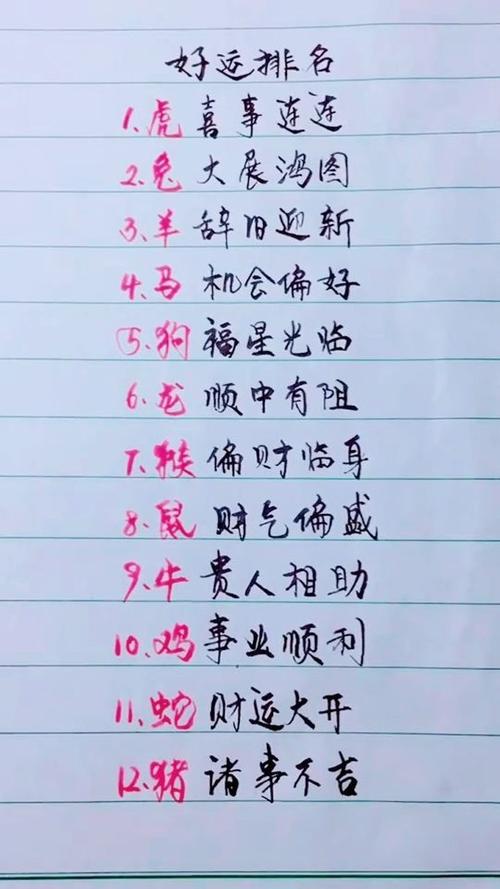 好运排名
1.虎 喜事连连
2.兔 大展鸿图
3.羊 辞旧迎新
4.马 机会偏好
5.狗 福星光临
6.龙 顺中有阻
7.猴 偏财临身
8.鼠 财气偏盛
9.牛 贵人相助
10.鸡 事业顺利
11.蛇 财运大开
12.猪 诸事不吉